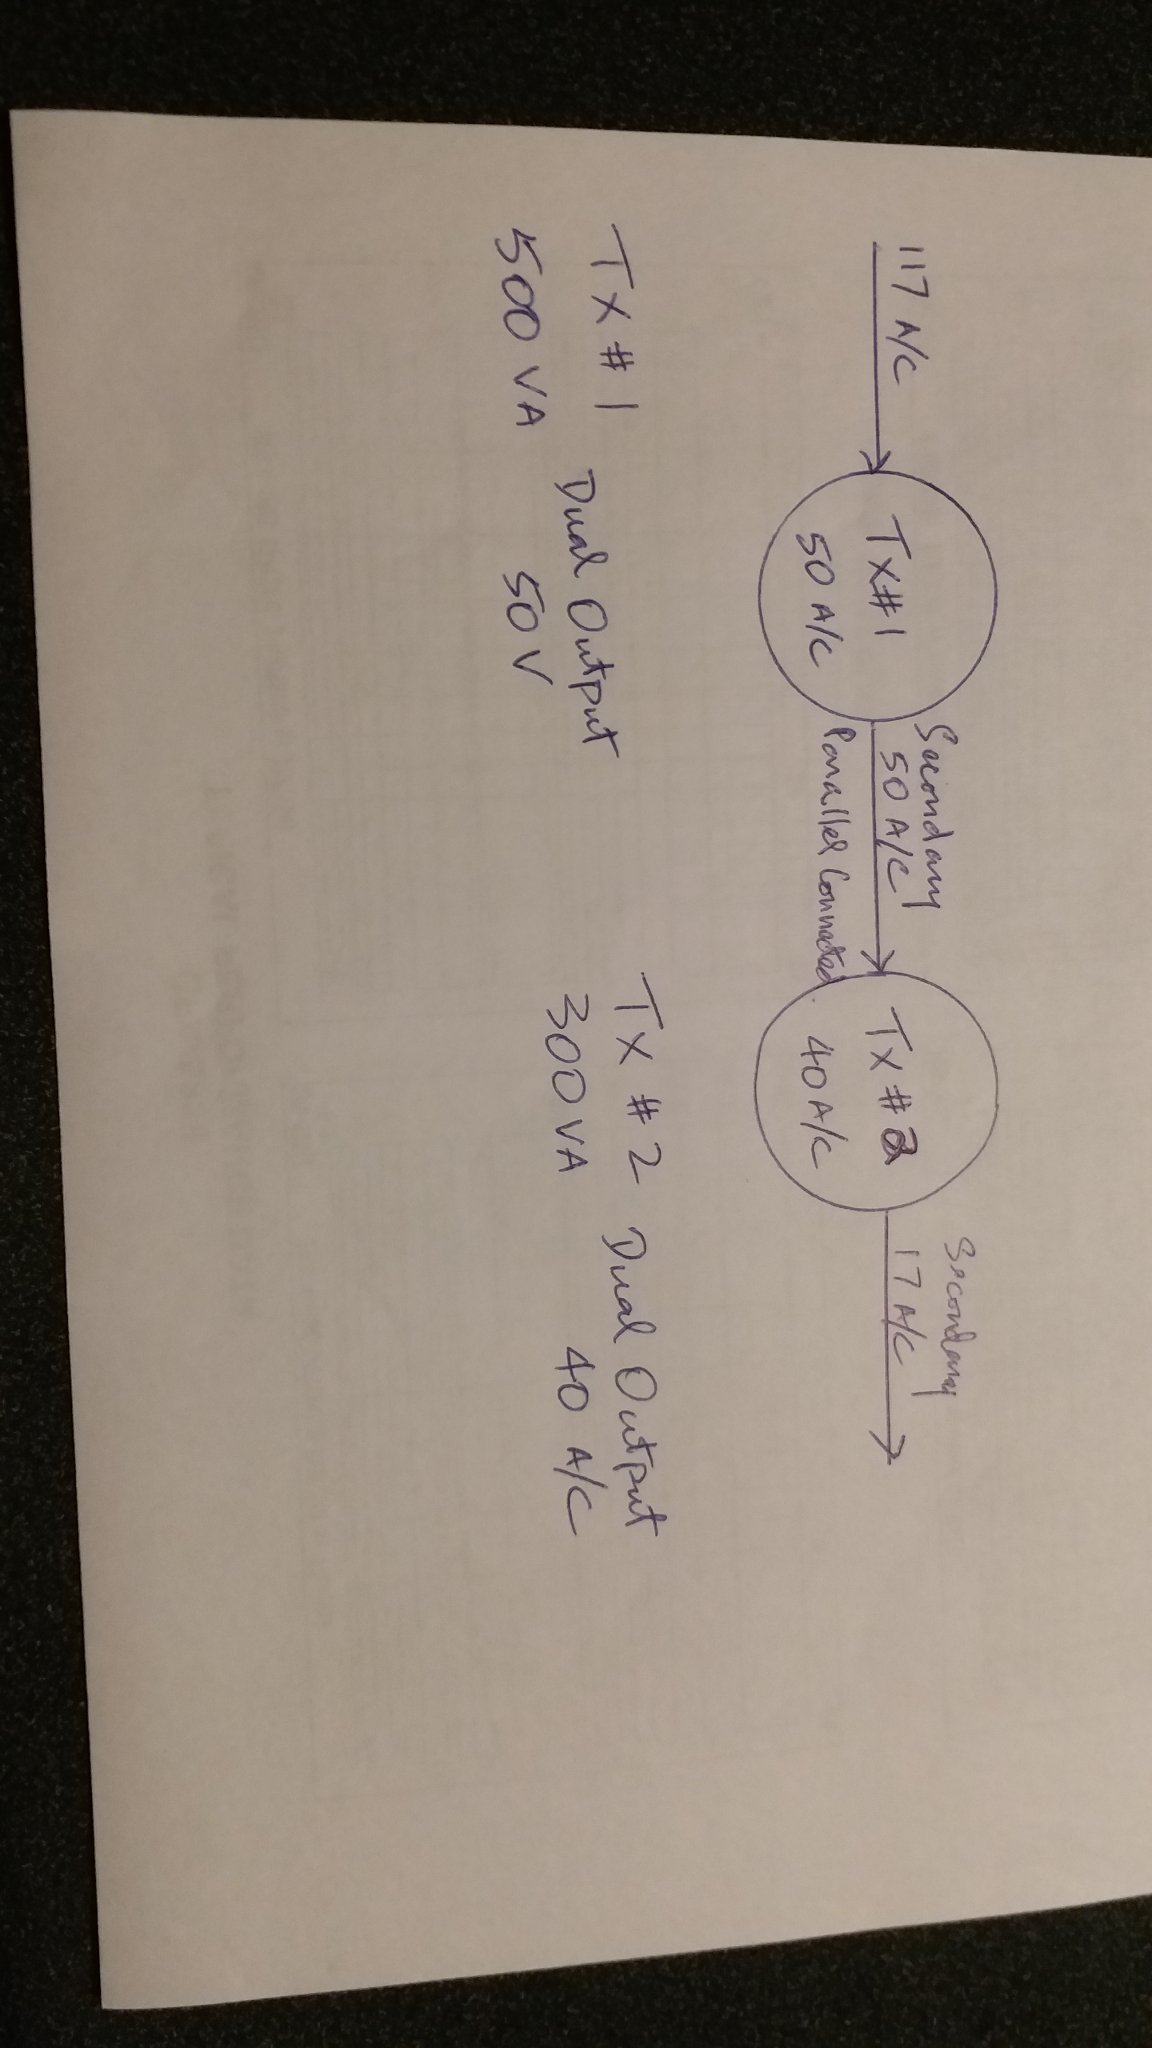 117 A/C
TX#1
50 A/C
Secondary
50 A/C
Parallel Connected.
TX #2
40 A/C
Secondary
17 A/C
TX #1 Dual Output
500 VA 50 V
TX #2 Dual Output
300 VA 40 A/C